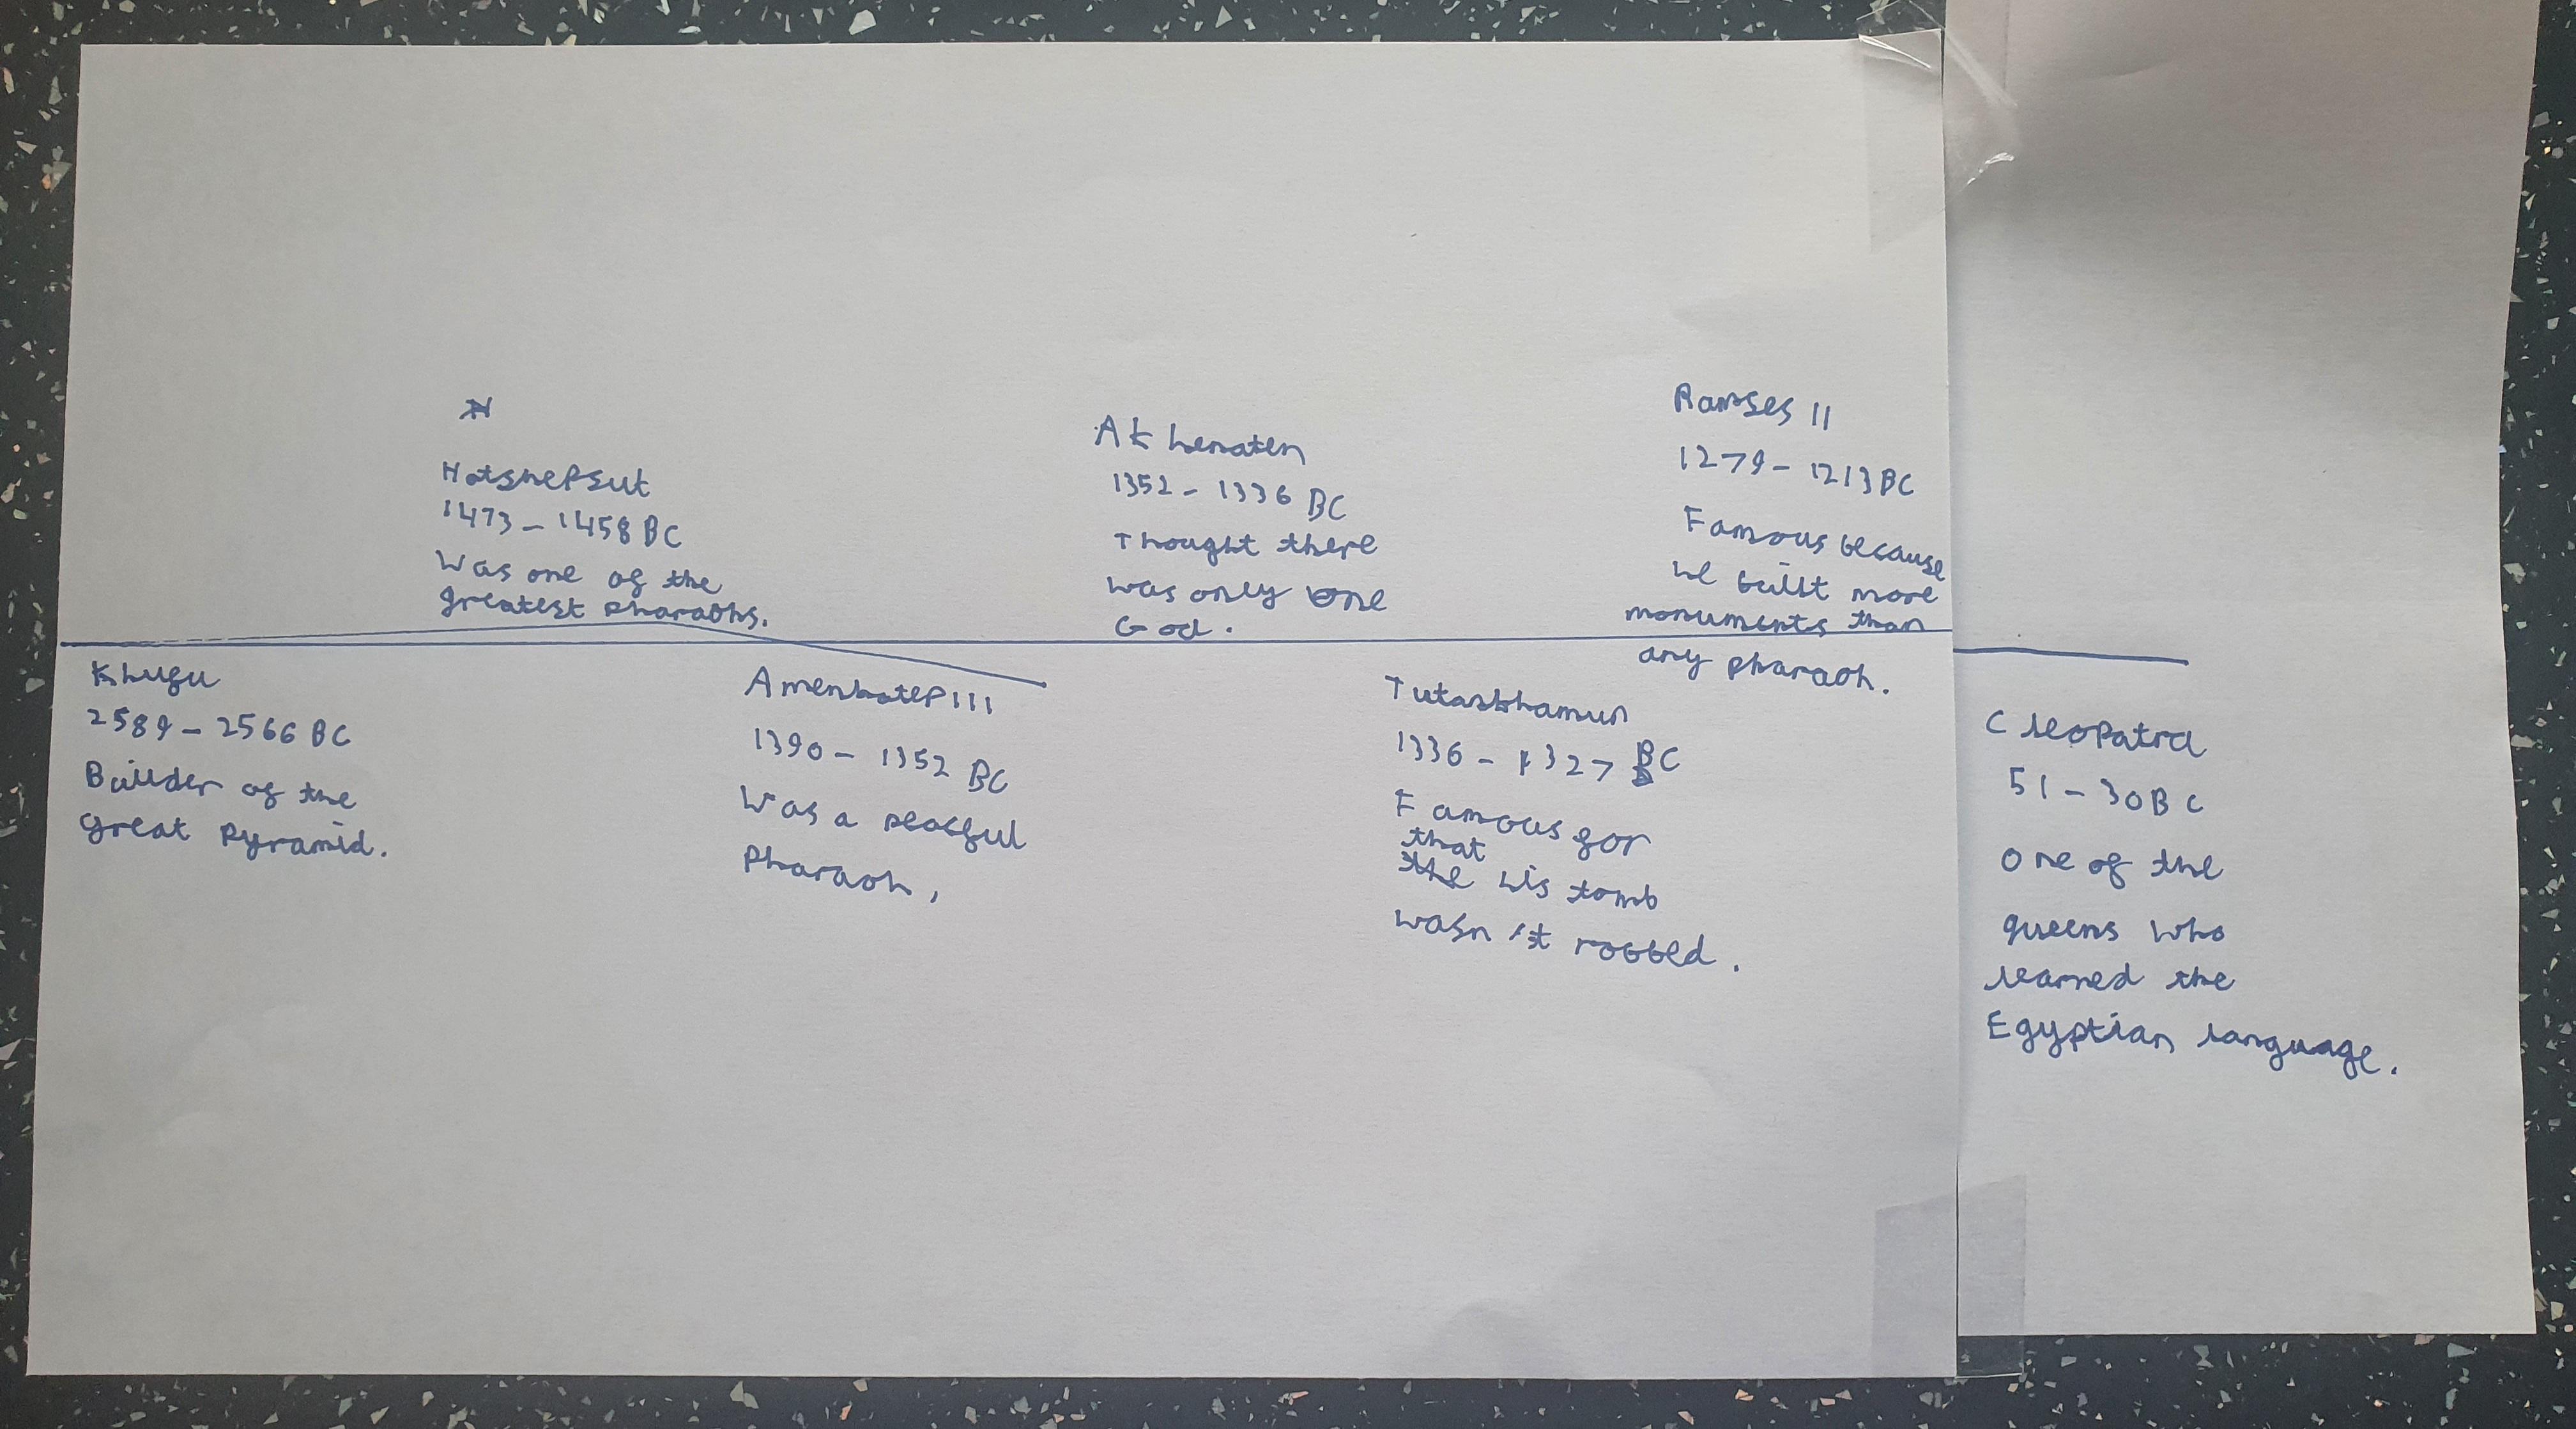 Hatshepsut
1473 - 1458 BC
Was one of the
greatest pharaohs.
Akhenaten
1352 - 1336 BC
Thought there
was only one
God.
Ramses II
1279 - 1213 BC
Famous because
he built more
monuments than
any pharaoh.
Khufu
2589 - 2566 BC
Builder of the
great pyramid.
Amenhotep III
1390 - 1352 BC
Was a peacful
Pharaoh,
Tutankhamun
1336 - 1327 BC
Famous for
that
the his tomb
wasn't robbed.
Cleopatra
51 - 30 BC
One of the
queens who
learned the
Egyptian language.